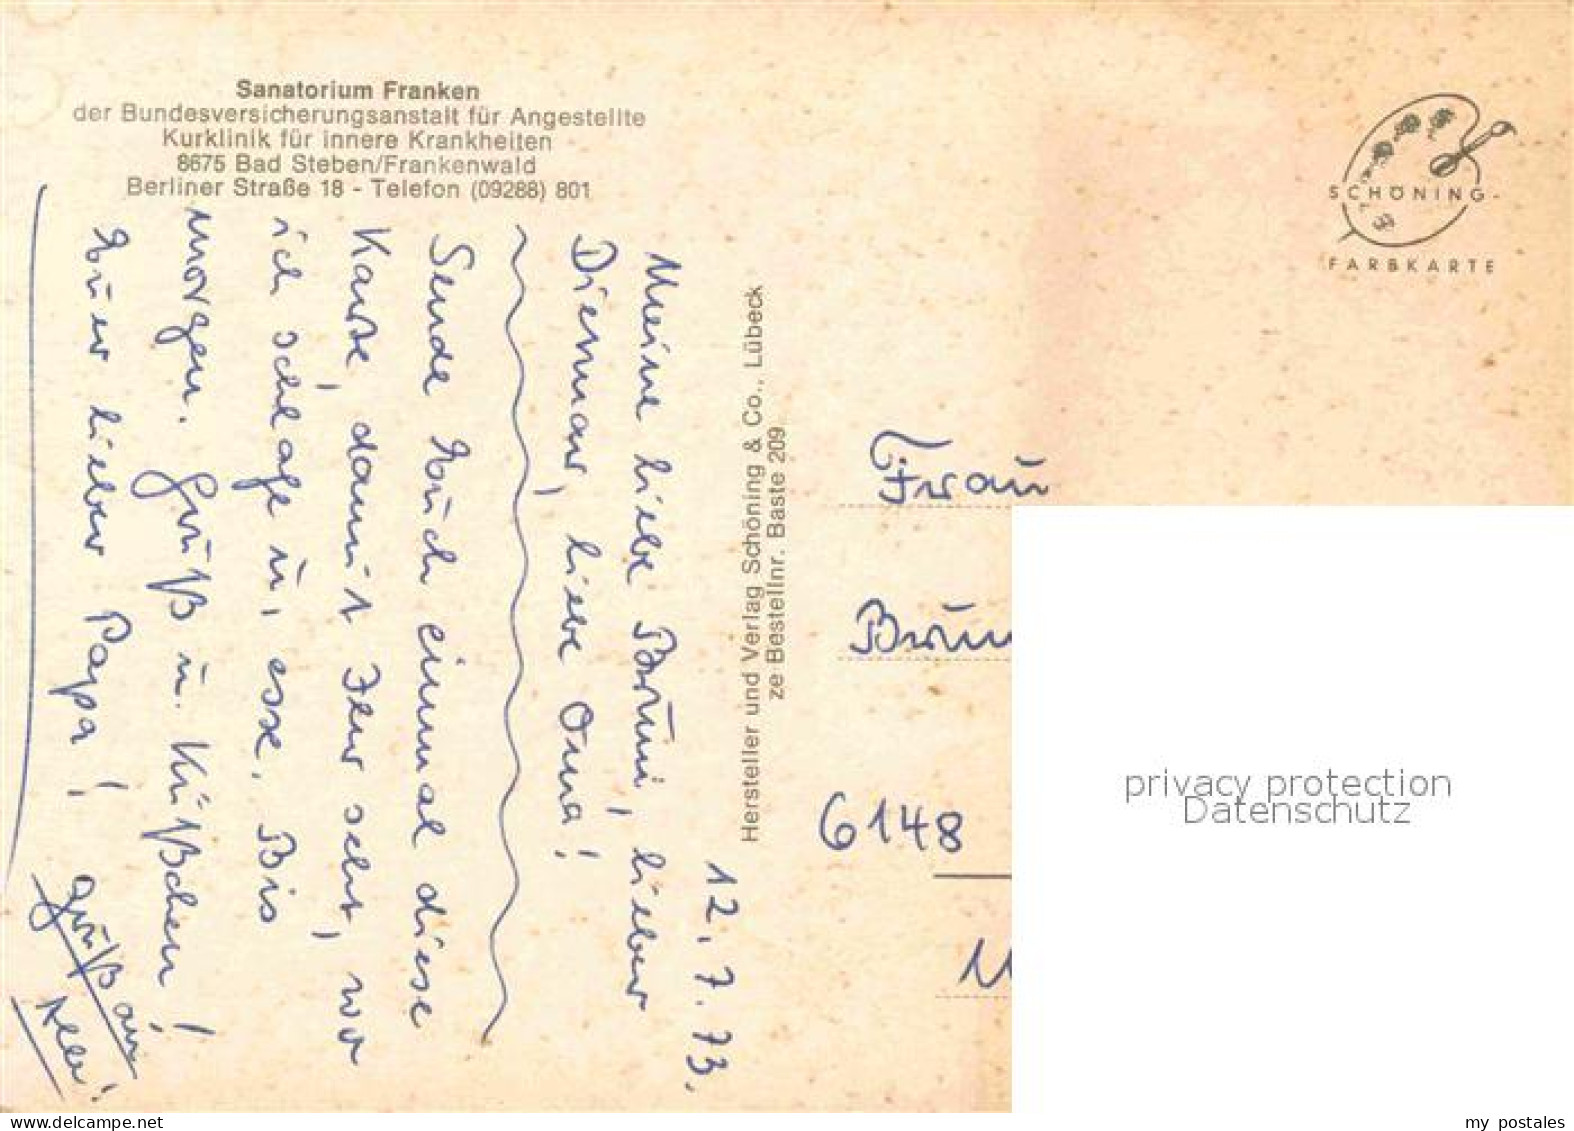 Sanatorium Franken
der Bundesversicherungsanstalt für Angestellte
Kurklinik für innere Krankheiten
8675 Bad Steben/Frankenwald
Berliner Straße 18 - Telefon (09288) 801
12. 7. 73.
Meine liebe Bruni, lieber
Dietmar, liebe Oma!
Sende Euch einmal diese
Karte, damit Ihr seht, wo
ich schlafe u, esse. Bis
morgen. Gruß u. Küßchen!
Euer lieber Papa!
Gruß an
Alle!
Hersteller und Verlag Schöning & Co., Lübeck
ze Bestellnr. Baste 209
SCHÖNING-
FARBKARTE
Frau
6148
privacy protection
Datenschutz
www.delcampe.net
my_postales